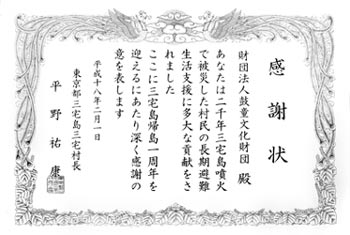 感謝状
財団法人鼓童文化財団 殿
あなたは二千年三宅島噴火
で被災した村民の長期避難
生活支援に多大な貢献をさ
れました
ここに三宅島帰島一周年を
迎えるにあたり深く感謝の
意を表します
平成十八年二月一日
東京都三宅島三宅村長
平野祐康